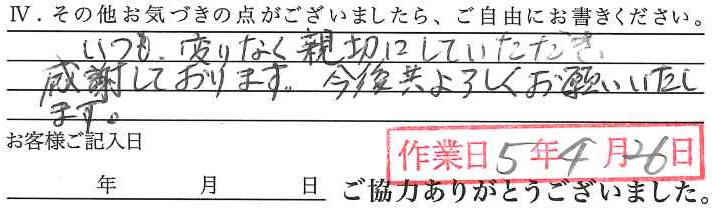 Ⅳ．その他お気づきの点がございましたら、ご自由にお書きください。
いつも、変りなく親切にしていただき、
感謝しております。今後共よろしくお願いいたし
ます。
お客様ご記入日
作業日5年4月26日
年 月 日
ご協力ありがとうございました。